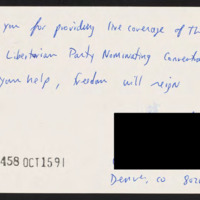 you for providing live coverage of Th
Libertarian Party Nominating Convention
your help, freedom will reign
458 OCT 15 91
Denver, CO 802